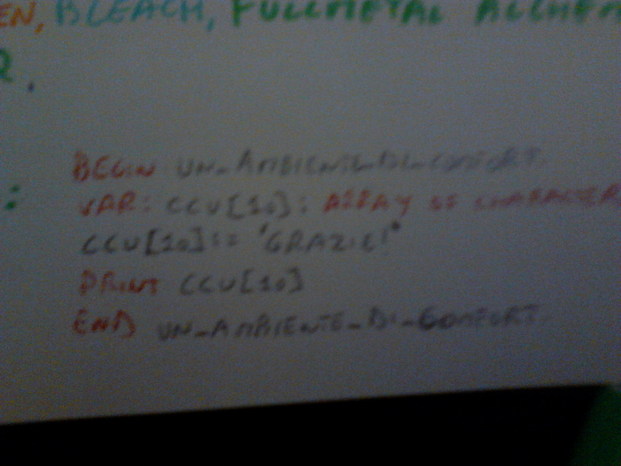 EN, BLEACH, FULLMETAL ALCHEM
R.
: BEGIN UN_AMBIENTE_DI_COMFORT.
VAR: CCU[10]: ARRAY OF CHARACTER
CCU[10]:= "GRAZIE!"
PRINT CCU[10]
END UN_AMBIENTE_DI_COMFORT.